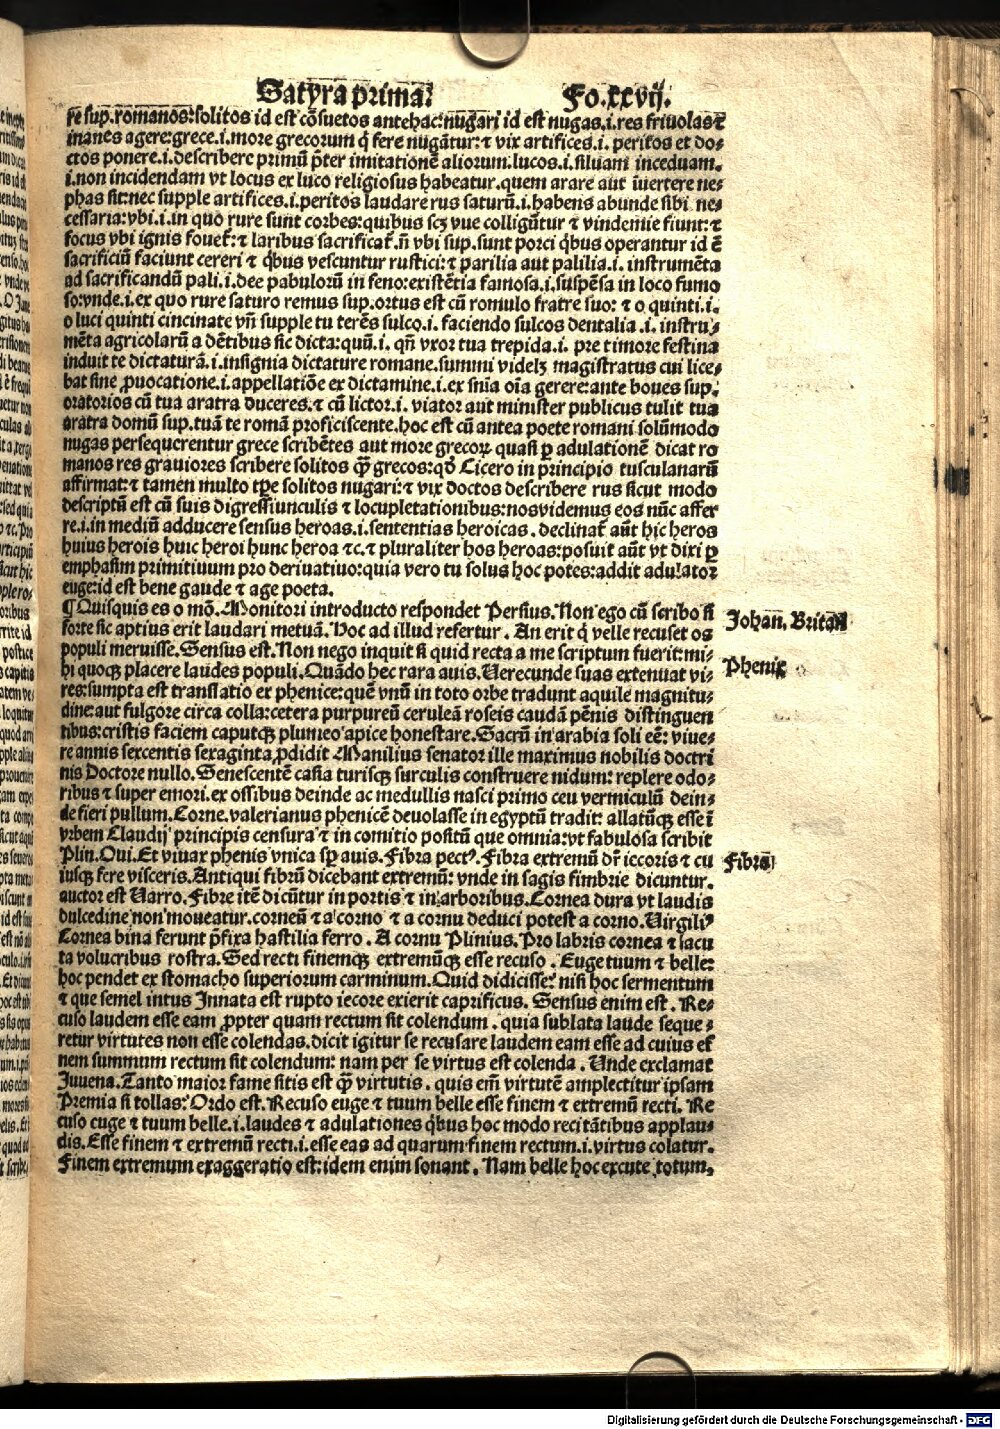 Satyra prima. Fo.xxvij.
re sup.romanos:solitos id est cõsuetos antehac:nugari id est nugas.i.res friuolas ⁊
inanes agere:grece.i.more grecorum q̇ fere nugãtur:⁊ vix artifices.i. peritos et do⸗
ctos ponere.i.describere primũ p̃ter imitationẽ aliorum:lucos.i.siluam inceduam.
i.non incidendam vt locus ex luco religiosus habeatur.quem arare aut ĩuertere ne⸗
phas sit:nec supple artifices.i.peritos laudare rus saturũ.i.habens abunde sibi ne⸗
cessaria:vbi.i.in quo rure sunt corbes:quibus scꝫ vue colligũtur ⁊ vindemie fiunt:⁊
focus vbi ignis fouet̃:⁊ laribus sacrificat̃.ñ vbi sup.sunt porci q̇bus operantur id ẽ
sacrificiũ faciunt cereri ⁊ q̇bus vescuntur rustici:⁊ parilia aut palilia.i. instrumẽta
ad sacrificandũ pali.i.dee pabulorũ in feno:existẽtia famosa.i.suspẽsa in loco fumo
so:vnde.i.ex quo rure saturo remus sup.ortus est cũ romulo fratre suo: ⁊ o quinti.i.
o luci quinti cincinate vñ supple tu terẽs sulco.i. faciendo sulcos dentalia .i. instru⸗
mẽta agricolarũ a dẽtibus sic dicta:quũ.i. qñ vxor tua trepida.i. pre timore festina
induit te dictaturã.i.insignia dictature romane.summi videlꝫ magistratus cui lice⸗
bat sine ꝓuocatione.i.appellatiõe ex dictamine.i.ex snĩa oĩa gerere:ante boues sup.
oratorios cũ tua aratra duceres.⁊ cũ lictor.i. viator aut minister publicus tulit tua
aratra domũ sup.tuã te romã proficiscente.hoc est cũ antea poete romani solũmodo
nugas persequerentur grece scribẽtes aut more grecoꝝ quasi ꝑ adulationẽ dicat ro
manos res grauiores scribere solitos q̃ȝ grecos:qð Cicero in principio tusculanarũ
affirmat:⁊ tamen multo tp̃e solitos nugari:⁊ vix doctos describere rus sicut modo
descriptũ est cũ suis digressiunculis ⁊ locupletationibus:nosvidemus eos nũc affer
re.i.in mediũ adducere sensus heroas.i.sententias heroicas. declinat̃ aũt hic heros
huius herois huic heroi hunc heroa ⁊c.⁊ pluraliter hos heroas:posuit aũt vt dixi ꝑ
emphasim primitiuum pro deriuatiuo:quia vero tu solus hoc potes:addit adulator
euge:id est bene gaude ⁊ age poeta.
¶Quisquis es o mõ. Monitori introducto respondet Persius. Non ego cũ scribo si
forte sic aptius erit laudari metuã. Hoc ad illud refertur. An erit q̇ velle recuset os
populi meruisse. Sensus est. Non nego inquit si quid recta a me scriptum fuerit:mi⸗
hi quoqꝫ placere laudes populi. Quãdo hec rara auis. Uerecunde suas extenuat vi⸗
res:sumpta est translatio ex phenice:quẽ vnũ in toto orbe tradunt aquile magnitu⸗
dine:aut fulgore circa colla:cetera purpureũ ceruleã roseis caudã pẽnis distinguen
tibus:cristis faciem caputqꝫ plumeo apice honestare. Sacrũ in arabia soli eẽ: viue⸗
re annis sexcentis sexaginta ꝓdidit Manilius senator ille maximus nobilis doctri
nis Doctore nullo. Senescentẽ casia turisqꝫ surculis construere nidum: replere odo⸗
ribus ⁊ super emori.ex ossibus deinde ac medullis nasci primo ceu vermiculũ dein⸗
de fieri pullum. Corne.valerianus phenicẽ deuolasse in egyptũ tradit: allatũqꝫ esse ĩ
vrbem Claudij principis censura ⁊ in comitio positũ que omnia:vt fabulosa scribit
Plin. Oui. Et viuax phenis vnica sp̃ auis. Fibra pectꝰ. Fibra extremũ dr̃ iecoris ⁊ cu
iusqꝫ fere visceris. Antiqui fibrũ dicebant extremũ: vnde in sagis fimbrie dicuntur.
auctor est Uarro. Fibre itẽ dicũtur in portis ⁊ in arboribus. Cornea dura vt laudis
dulcedine non moueatur.corneũ ⁊ a corno ⁊ a cornu deduci potest a corno. Uirgiliꝰ
Cornea bina ferunt p̃fixa hastilia ferro. A cornu Plinius. Pro labris cornea ⁊ acu
ta volucribus rostra. Sed recti finemqꝫ extremũqꝫ esse recuso. Euge tuum ⁊ belle:
hoc pendet ex stomacho superiorum carminum. Quid didicisse: nisi hoc sermentum
⁊ que semel intus Innata est rupto iecore exierit caprificus. Sensus enim est. Re⸗
cuso laudem esse eam ꝓpter quam rectum sit colendum. quia sublata laude seque⸗
retur virtutes non esse colendas.dicit igitur se recusare laudem eam esse ad cuius ef̃
nem summum rectum sit colendum: nam per se virtus est colenda. Unde exclamat
Juuena. Tanto maior fame sitis est q̃ȝ virtutis. quis em̃ virtutẽ amplectitur ipsam
Premia si tollas: Ordo est. Recuso euge ⁊ tuum belle esse finem ⁊ extremũ recti. Re
cuso euge ⁊ tuum belle.i.laudes ⁊ adulationes q̇bus hoc modo recitãtibus applau⸗
dis. Esse finem ⁊ extremũ recti.i.esse eas ad quarum finem rectum.i.virtus colatur.
Finem extremum exaggeratio est:idem enim sonant. Nam belle hoc excute totum,
Johan. Britañ
Phenix
Fibra
Digitalisierung gefördert durch die Deutsche Forschungsgemeinschaft - DFG